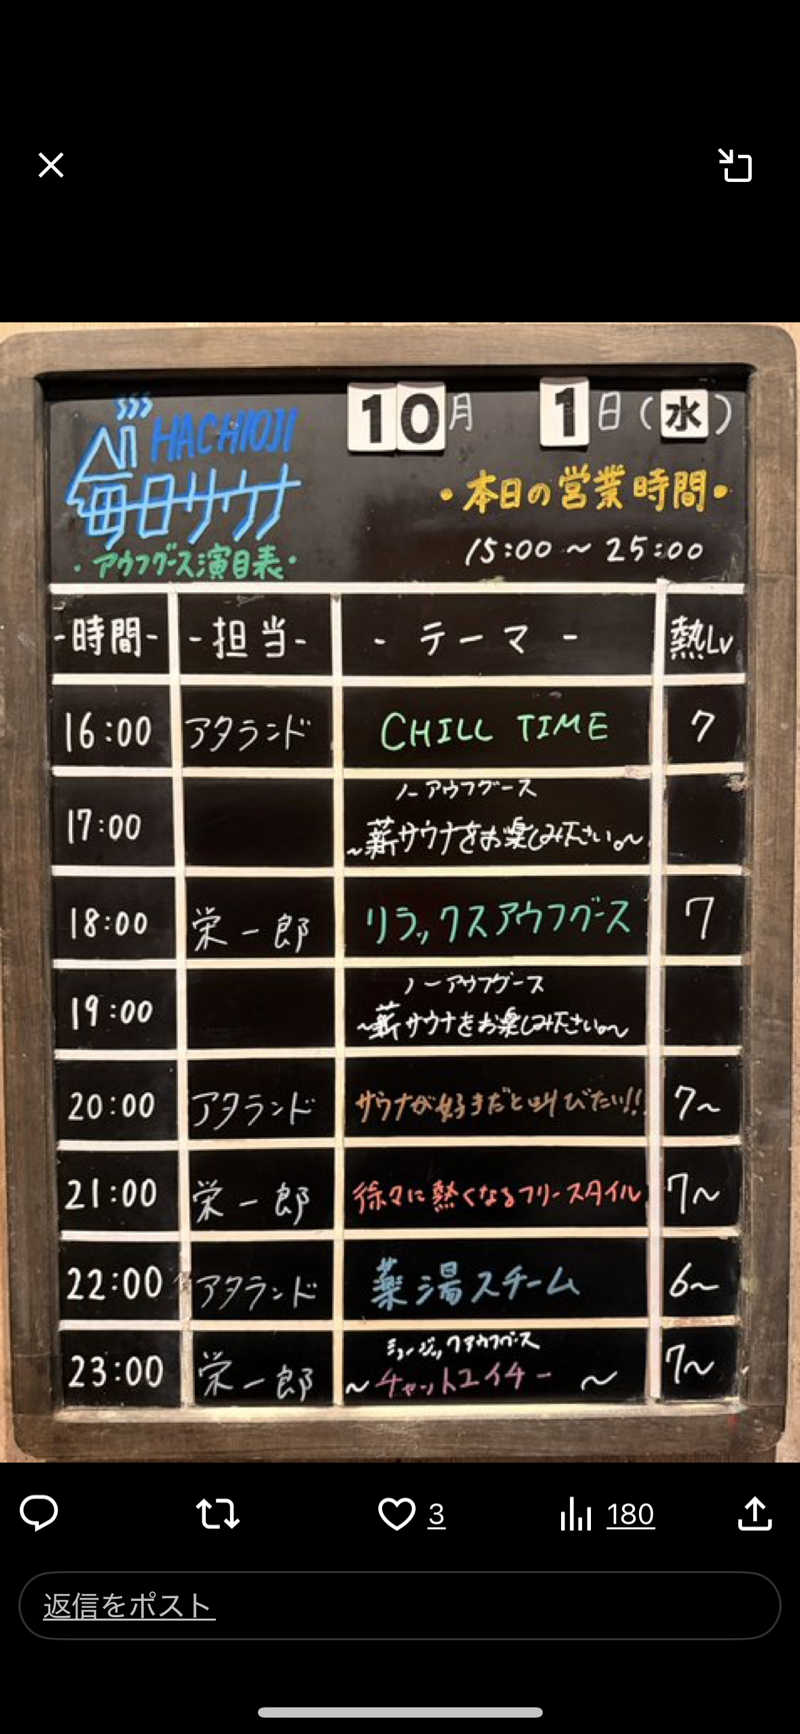 HACHIOJI
毎日サウナ
・アウフグース演目表・
10月 1日(水)
・本日の営業時間・
15:00 ~ 25:00
-時間- -担当- - テーマ - 熱Lv
16:00 アタランド CHILL TIME 7
ノーアウフグース
17:00 ~薪サウナをお楽しみ下さい。~
18:00 栄一郎 リラックスアウフグース 7
ノーアウフグース
19:00 ~薪サウナをお楽しみ下さい。~
20:00 アタランド サウナが好きだと叫びたい!! 7~
21:00 栄一郎 徐々に熱くなるフリースタイル 7~
22:00 アタランド 薬湯スチーム 6~
ミュージックアウフグース
23:00 栄一郎 ~チャットエイチー ~ 7~
3 180
返信をポスト